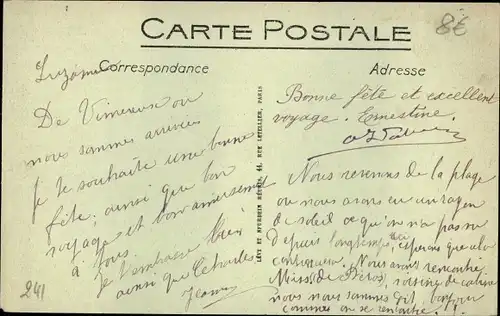 CARTE POSTALE
8€
Correspondance
Adresse
Suzanne
De Vimereux où
nous sommes arrivées
je te souhaite une bonne
fête ainsi que bon
voyage et bon amusement
à tous.
Je t'embrasse bien
ainsi que Charles
Jeanne
241
LÉVY ET NEURDEIN RÉUNIS, 44, RUE LETELLIER, PARIS
Bonne fête et excellent
voyage. Ernestine.
Nous revenons de la plage
où nous avons eu un rayon
de soleil ce qu'on n'a pas vu
depuis longtemps, espérons que cela
continuera. Nous avons rencontré
Miss de voisine de cabine
nous nous sommes dit, bonjour
comme on se rencontre!!